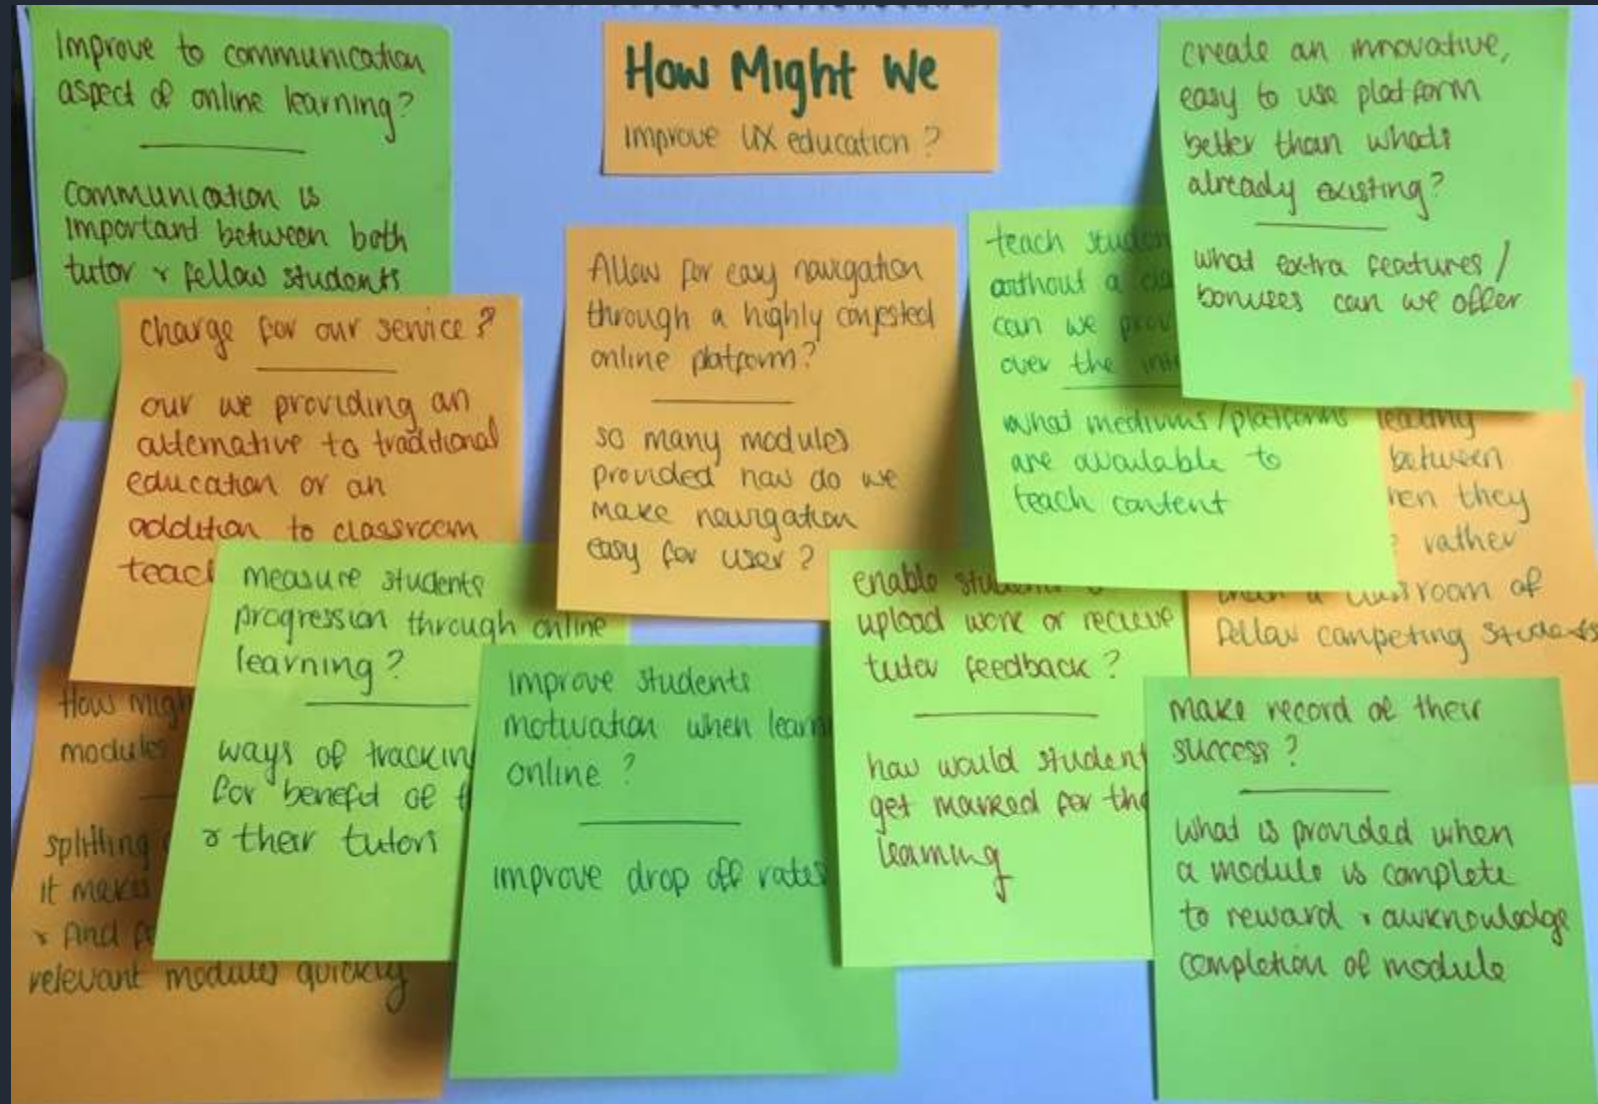 Improve to communication
aspect of online learning?
Communication is
important between both
tutor & fellow students
How Might We
improve UX education?
create an innovative,
easy to use platform
better than whats
already existing?
what extra features /
bonuses can we offer
charge for our service?
our we providing an
alternative to traditional
education or an
addition to classroom
Allow for easy navigation
through a highly conjested
online platform?
so many modules
provided how do we
make navigation
easy for user?
teach
without a
can we
over the
what mediums/platforms
are available to
teach content
between
they
rather
a classroom of
fellow competing students
measure students
progression through online
learning?
ways of tracking
for benefit of
& their tutors
How might
modules
splitting
it makes
& find
relevant modules quickly
improve students
motivation when learn
online?
improve drop off rates
enable
upload work or recieve
tutor feedback?
how would student
get marked for
learning
make record of their
success?
what is provided when
a module is complete
to reward & awknowledge
completion of module